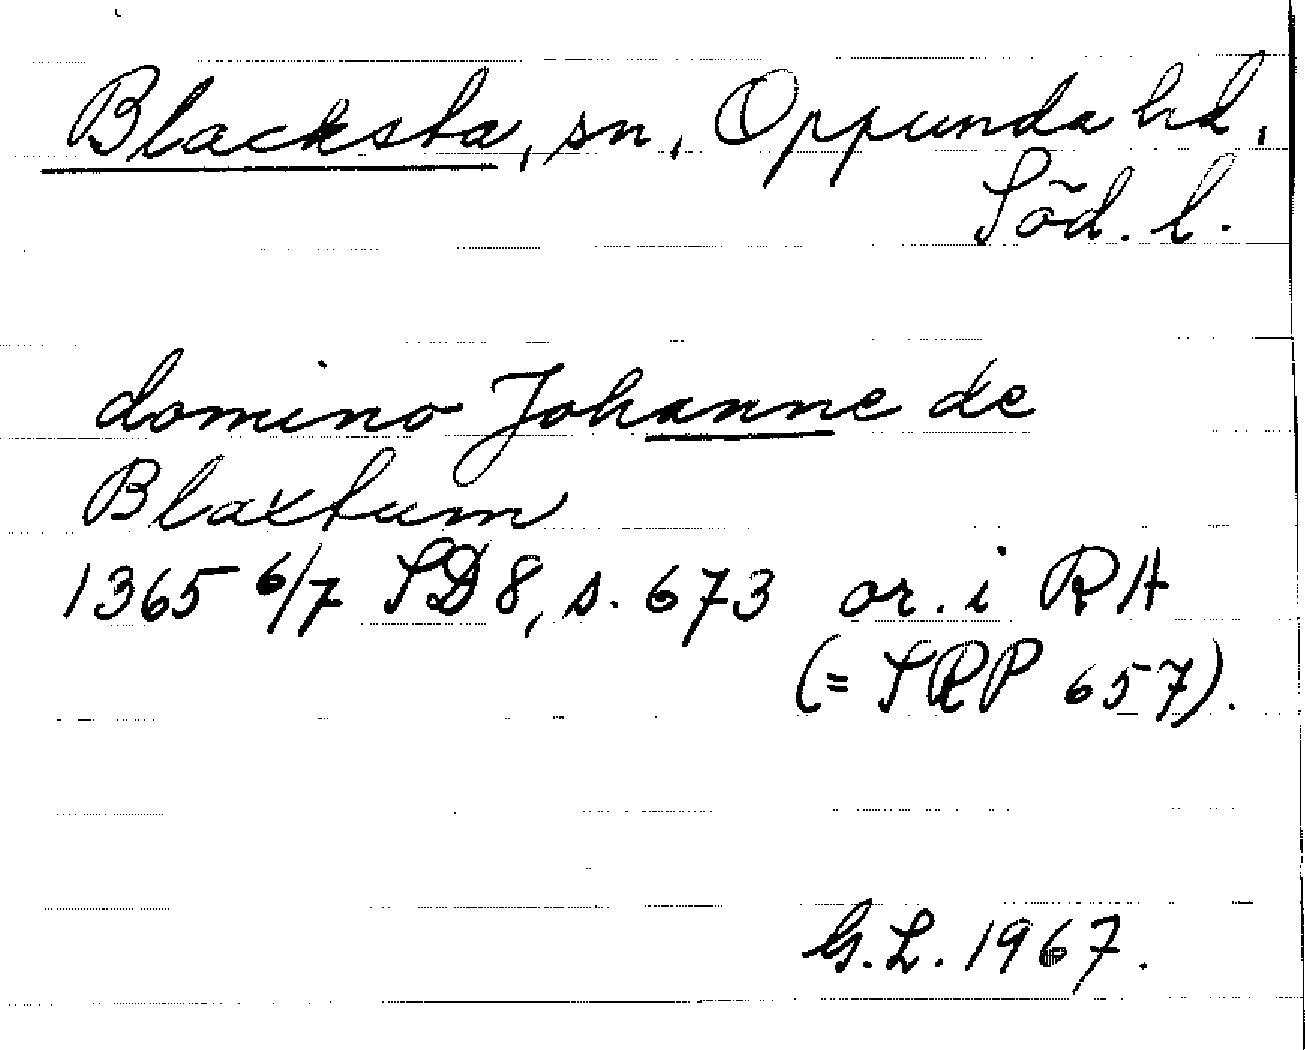 Blacksta, sn, Oppunda hd,
Söd. l.
domino Johanne de
Blaxtum
1365 6/7 SD 8, s. 673 or. i RA
(= SRP 657).
G. L. 1967.